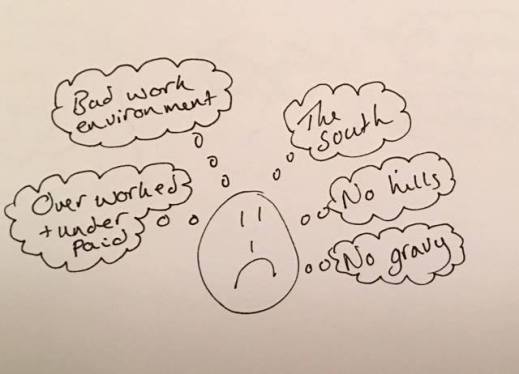 Bad work
environment
The
south
Over worked
+ under
paid
No hills
No gravy